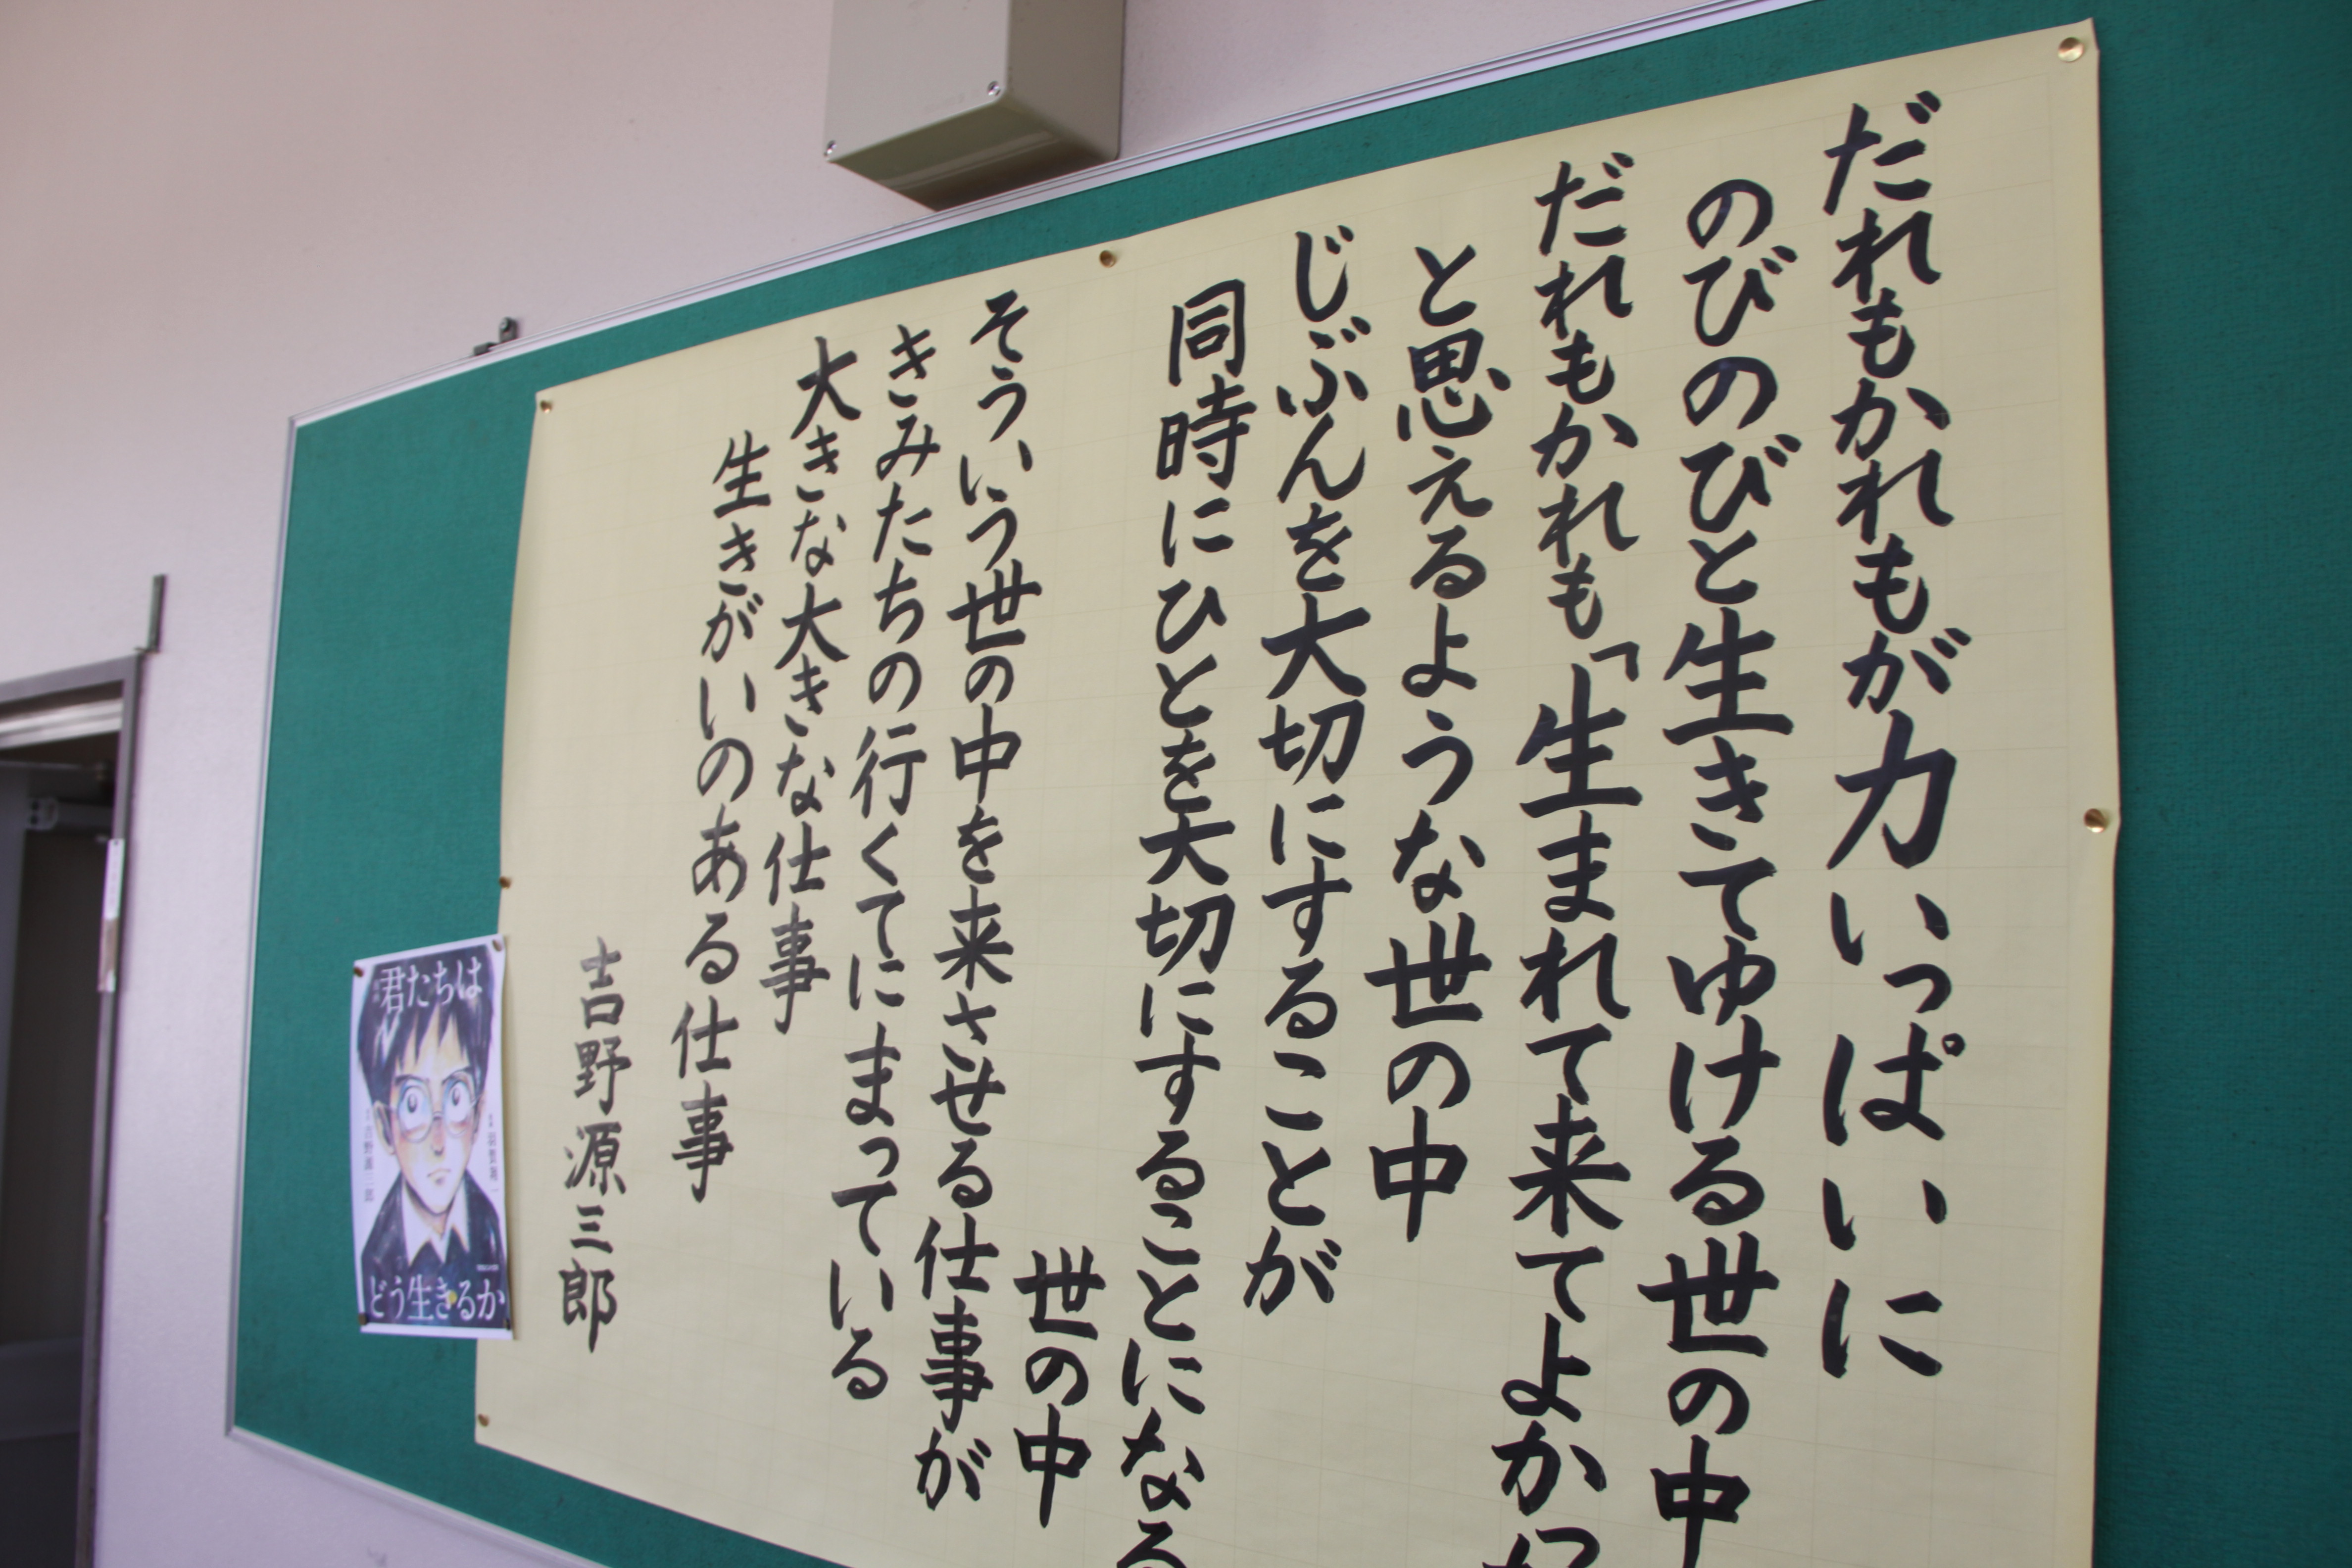 だれもかれもが力いっぱいに
のびのびと生きてゆける世の中
だれもかれも「生まれて来てよかっ
と思えるような世の中
じぶんを大切にすることが
同時にひとを大切にすることになる
世の中
そういう世の中を来させる仕事が
きみたちの行くてにまっている
大きな大きな仕事
生きがいのある仕事
吉野源三郎
君たちは
どう生きるか